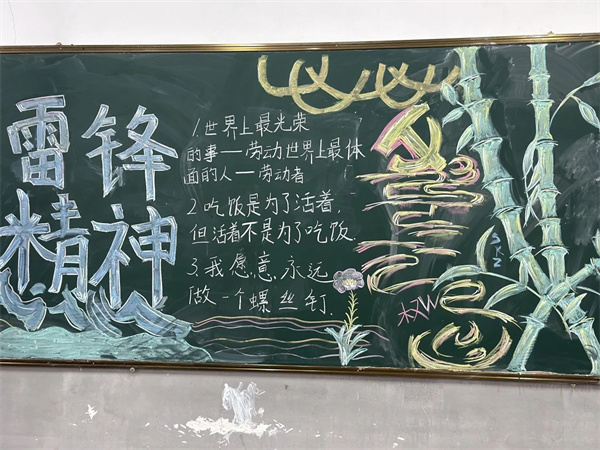 雷锋
精神
1.世界上最光荣
的事——劳动世界上最体
面的人——劳动者
2.吃饭是为了活着,
但活着不是为了吃饭.
3.我愿意永远
做一个螺丝钉.